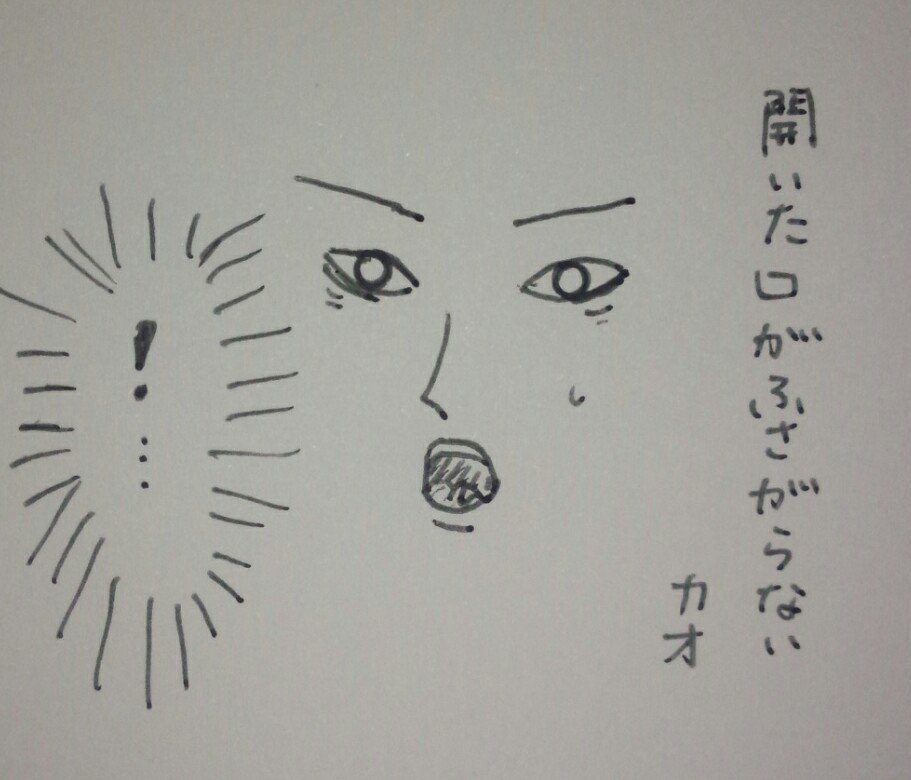 開いた口がふさがらない
カオ
!…